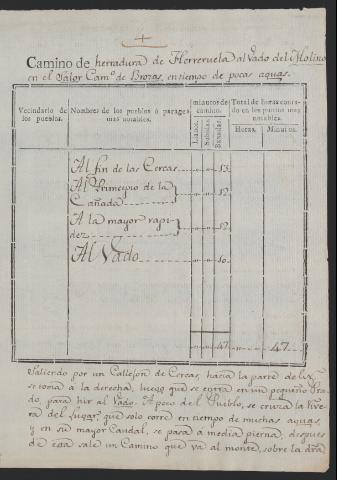 Camino de herradura de Herreruela al Vado del Molino
en el Salor Cam.º de Brozas, en tiempo de pocas aguas.
Vecindario de los pueblos.
Nombres de los pueblos ó parages mas notables.
minutos de camino.
Llanos.
Subidas.
Baxadas.
Total de horas conta-
do en los puntos mas notables
Horas.
Minutos.
Al fin de las Cercas 13.
Al Principio de la
Cañada 12.
A la mayor rapi-
dez 12.
Al Vado 10.
47. 47.
Saliendo por un Callejon de Cercas, hacia la parte de
se toma á la derecha, luego que se entra en un pequeño Pra-
do, para hir al Vado. A poco del Pueblo, se cruza la Rive-
ra del Lugar que solo corre en tiempo de muchas aguas,
y en su mayor Caudal, se pasa á media pierna, despues
de esta sale un Camino que va al monte, sobre la dra